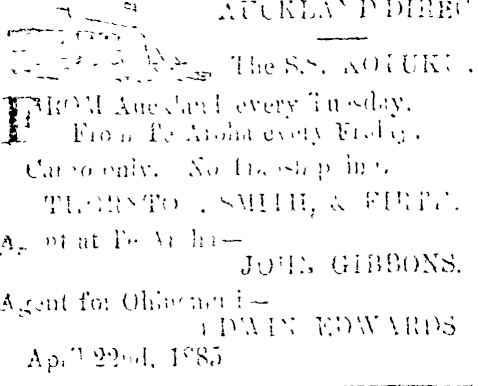 AUCKLAND DIREC
The S.S. KOTUKU.
FROM Auckland every Tuesday.
From Te Aroha every Friday.
Cargo only. No
THORNTON, SMITH, & FIRTH.
Agent at Te Aroha—
JOHN GIBBONS.
Agent for Ohinemuri—
EDWIN EDWARDS
April 22nd, 1885